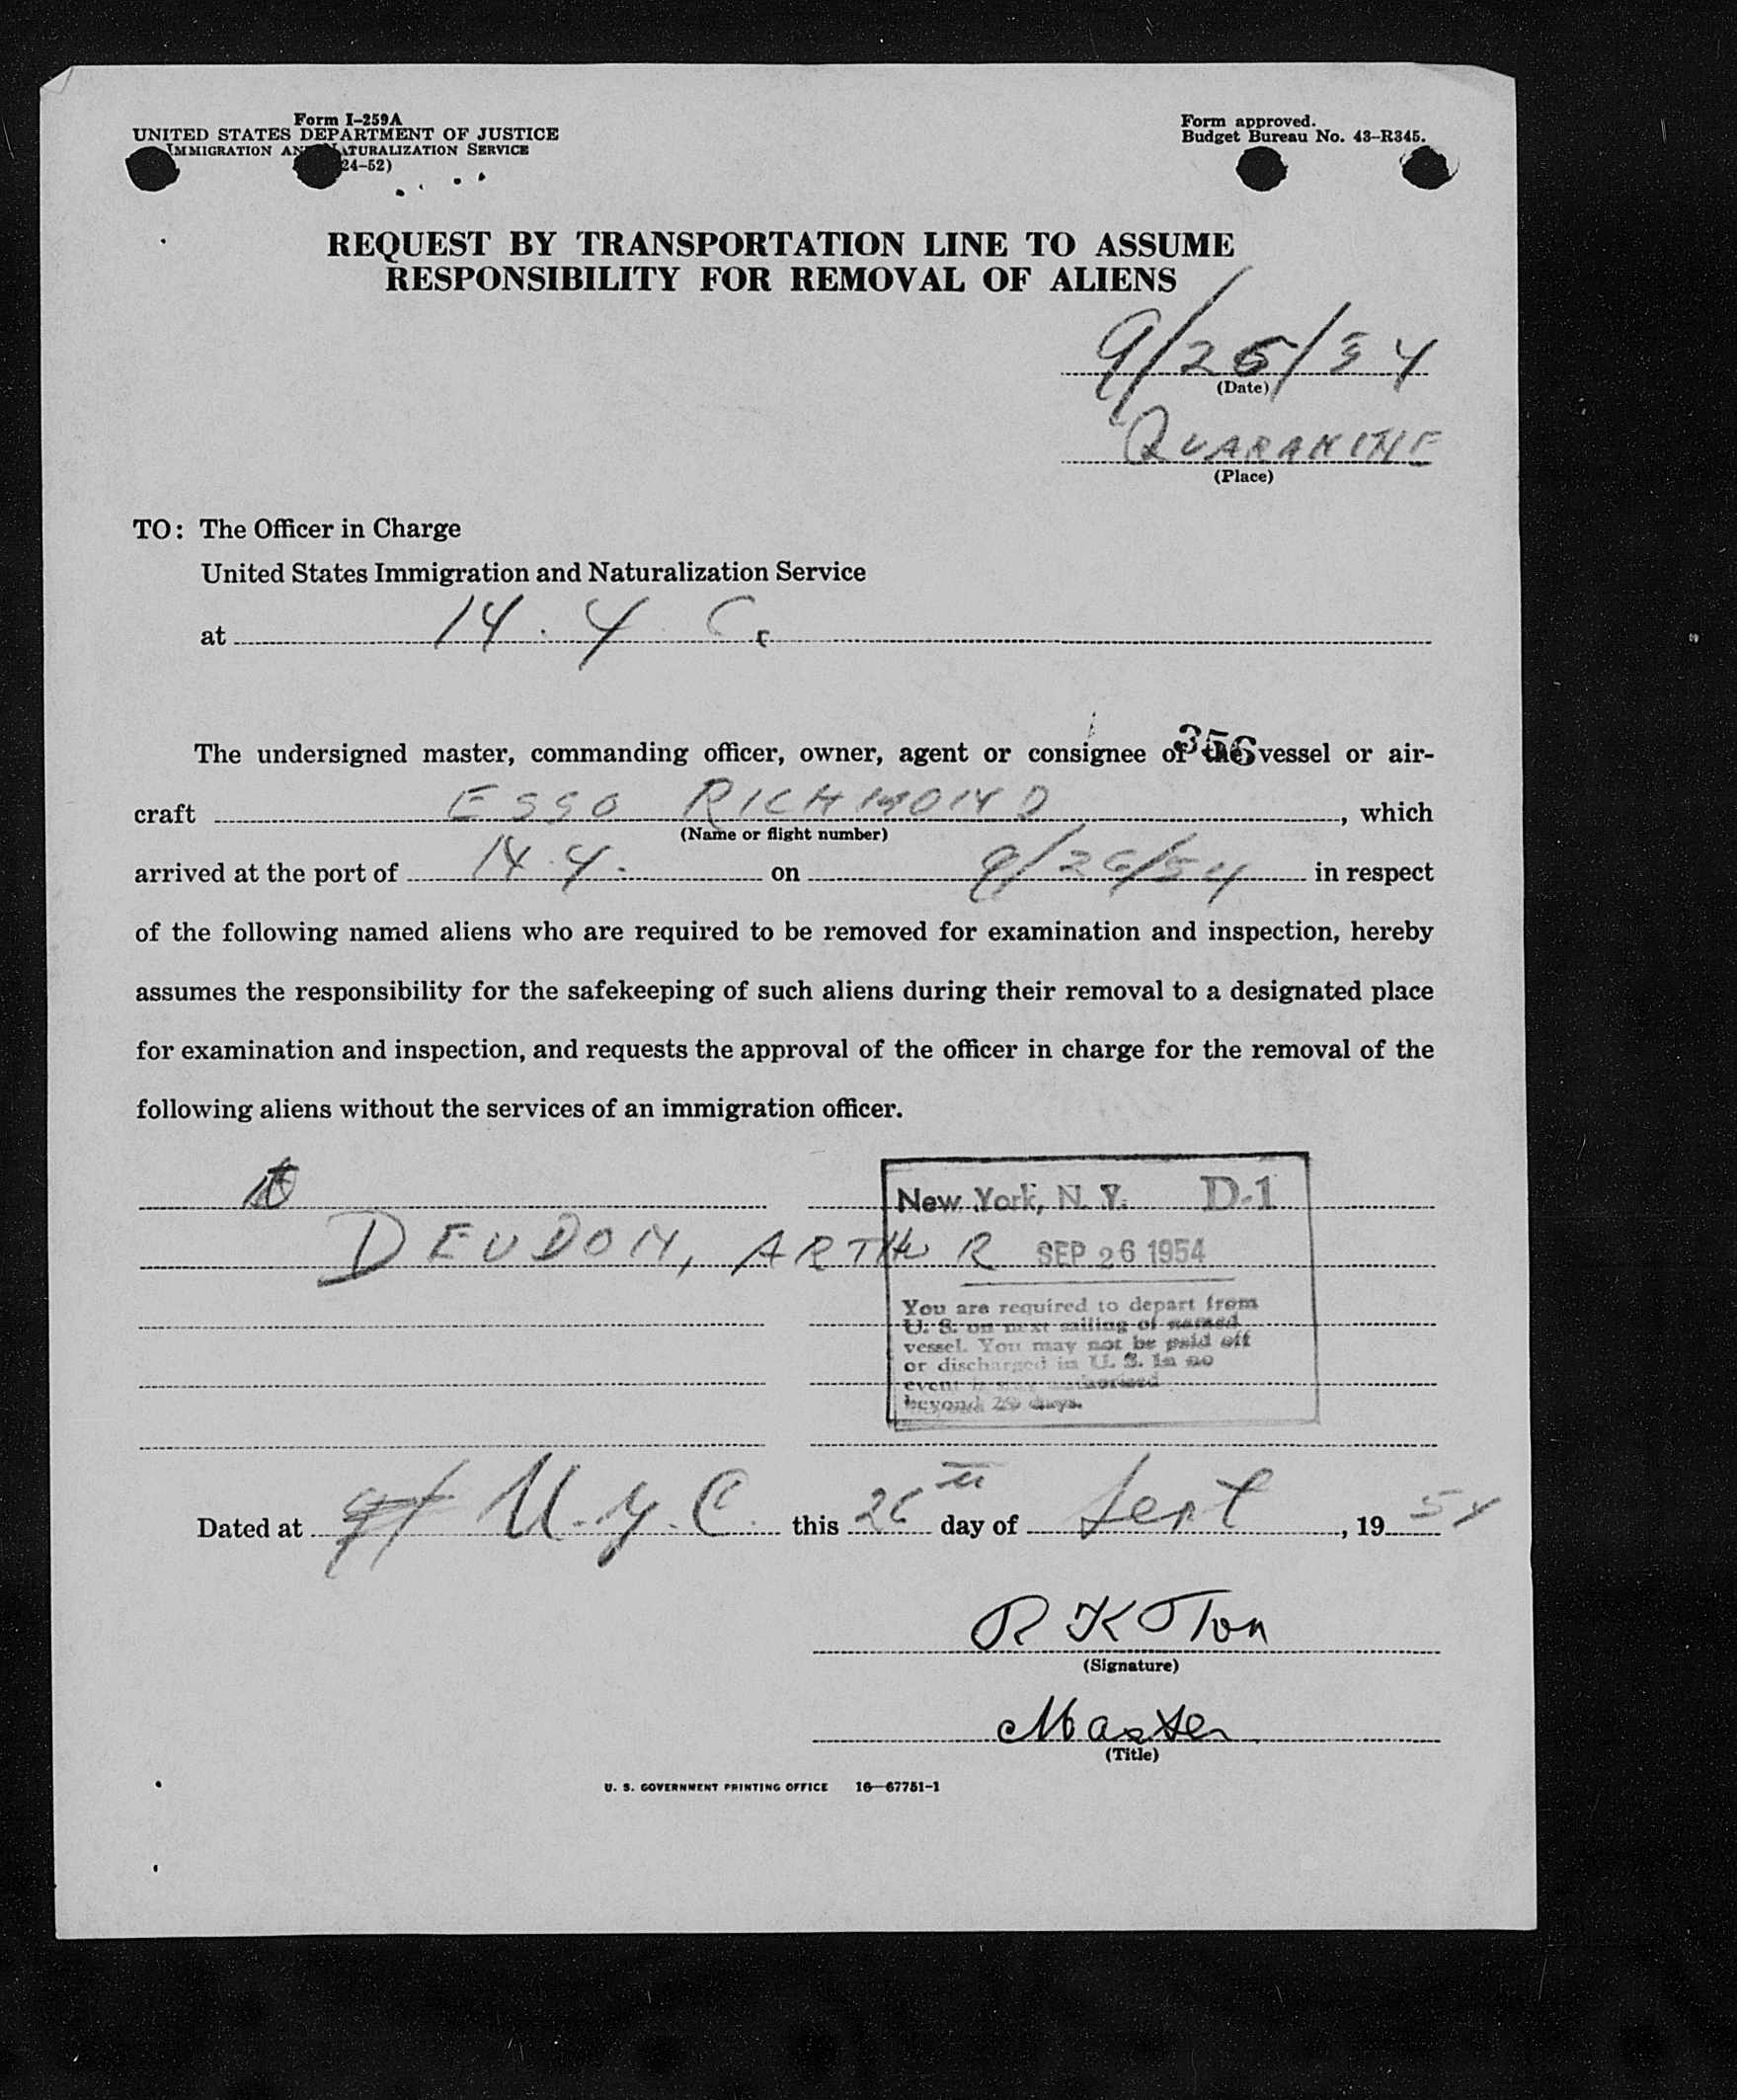 Form I-259A
UNITED STATES DEPARTMENT OF JUSTICE
IMMIGRATION AND NATURALIZATION SERVICE
24-52)
Form approved.
Budget Bureau No. 43-R345.
REQUEST BY TRANSPORTATION LINE TO ASSUME
RESPONSIBILITY FOR REMOVAL OF ALIENS
9/26/54
(Date)
QUARANTINE
(Place)
TO: The Officer in Charge
United States Immigration and Naturalization Service
at N. Y. C.
356
The undersigned master, commanding officer, owner, agent or consignee of the vessel or air-
craft ESSO RICHMOND, which
(Name or flight number)
arrived at the port of N. Y. on 9/26/54 in respect
of the following named aliens who are required to be removed for examination and inspection, hereby
assumes the responsibility for the safekeeping of such aliens during their removal to a designated place
for examination and inspection, and requests the approval of the officer in charge for the removal of the
following aliens without the services of an immigration officer.
New York, N. Y. D-1
DEUDON, ARTHUR
SEP 26 1954
You are required to depart from
U. S. on next sailing of named
vessel. You may not be paid off
or discharged in U. S. In no
event is stay authorized
beyond 29 days.
Dated at N. Y. C. this 26th day of Sept, 1954
R K
(Signature)
Master
(Title)
U. S. GOVERNMENT PRINTING OFFICE 16-67751-1